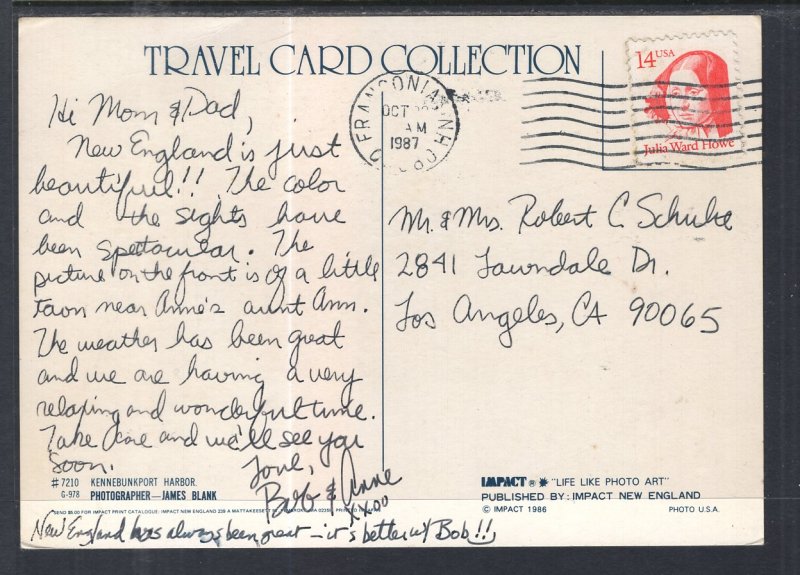 TRAVEL CARD COLLECTION
Hi Mom & Dad,
New England is just
beautiful!! The color
and the sights have
been spectacular. The
picture on the front is of a little
town near Anne's aunt Ann.
The weather has been great
and we are having a very
relaxing and wonderful time.
Take care and we'll see you
soon.
Love,
Bob & Anne
XXOO
#7210 KENNEBUNKPORT HARBOR.
G-978 PHOTOGRAPHER—JAMES BLANK
SEND $5.00 FOR IMPACT PRINT CATALOGUE: IMPACT NEW ENGLAND
New England has always been great — it's better w/ Bob!!
FRANCONIA NH
OCT
AM
1987
14 USA
Julia Ward Howe
Mr. & Mrs. Robert C. Schulze
2841 Lawndale Dr.
Los Angeles, CA 90065
IMPACT ® "LIFE LIKE PHOTO ART"
PUBLISHED BY: IMPACT NEW ENGLAND
© IMPACT 1986 PHOTO U.S.A.